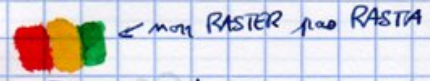 ← non RASTER pas RASTA